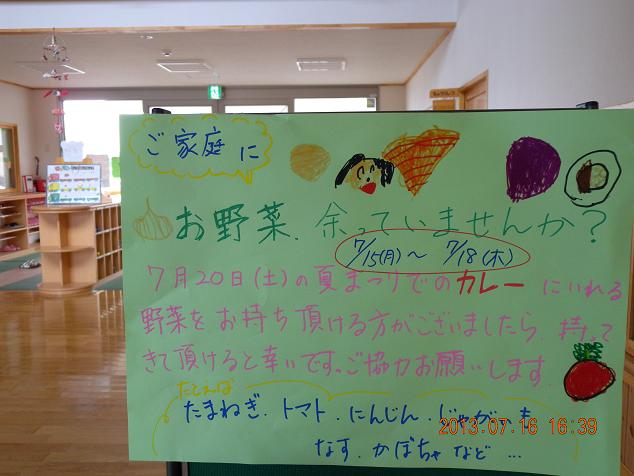 ご家庭に
お野菜、余っていませんか?
7/15(月)～ 7/18(木)
7月20日(土)の夏まつりでのカレーにいれる
野菜をお持ち頂ける方がございましたら、持って
きて頂けると幸いです。ご協力お願いします。
たとえば
たまねぎ、トマト、にんじん、じゃがいも
なす、かぼちゃなど…
2013.07.16 16:39